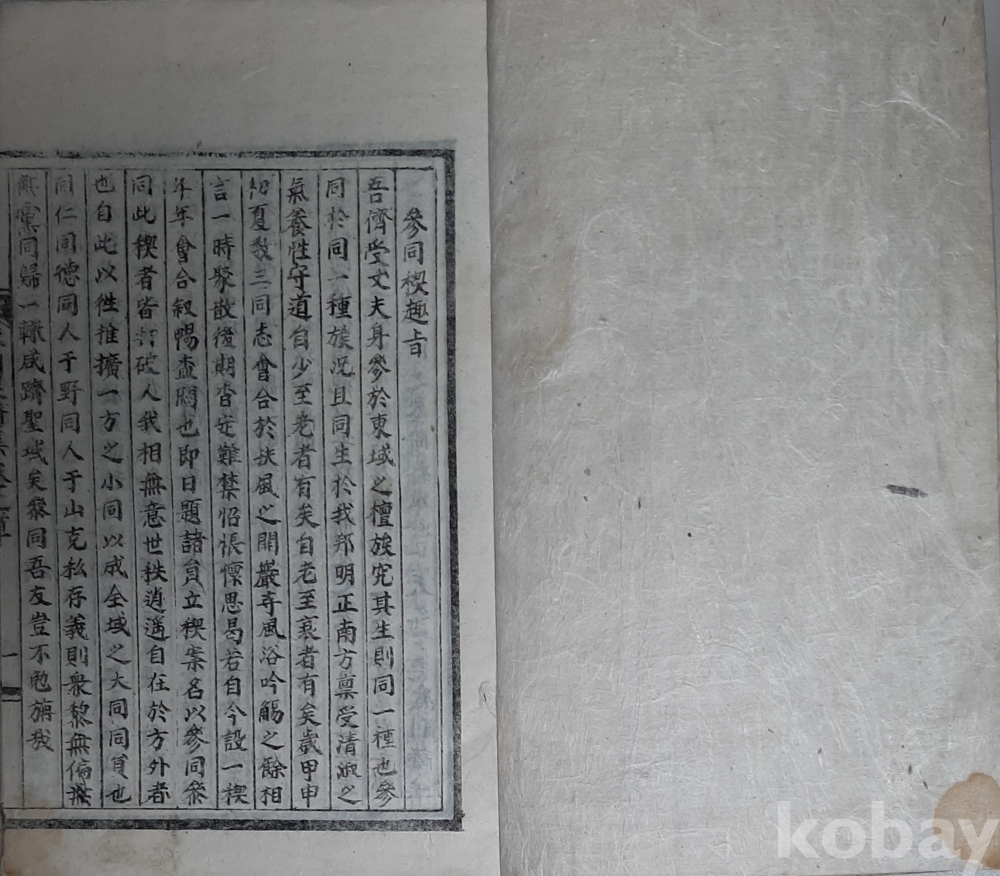 參同稧趣旨
吾儕受丈夫身參於東域之檀族究其生則同一種也參
同於同一種族况且同生於我邦明正南方稟受清淑之
氣養性守道自少至老者有矣自老至衰者有矣歲甲申
初夏數三同志會合於扶風之開巖寺風浴吟觴之餘相
言一時聚散後期杳茫難禁怊悵懷思曷若自今設一稧
年年會合叙暢壺悶也即日題諸員立稧案名以參同參
同此稧者皆打破人我相無意世秩逍遙自在於方外者
也自此以徃推擴一方之小同以成全域之大同同員也
同仁同德同人于野同人于山克私存義則衆黎無偏無
無黨同歸一轍咸躋聖域矣參同吾友豈不勉旃哉
一
kobay